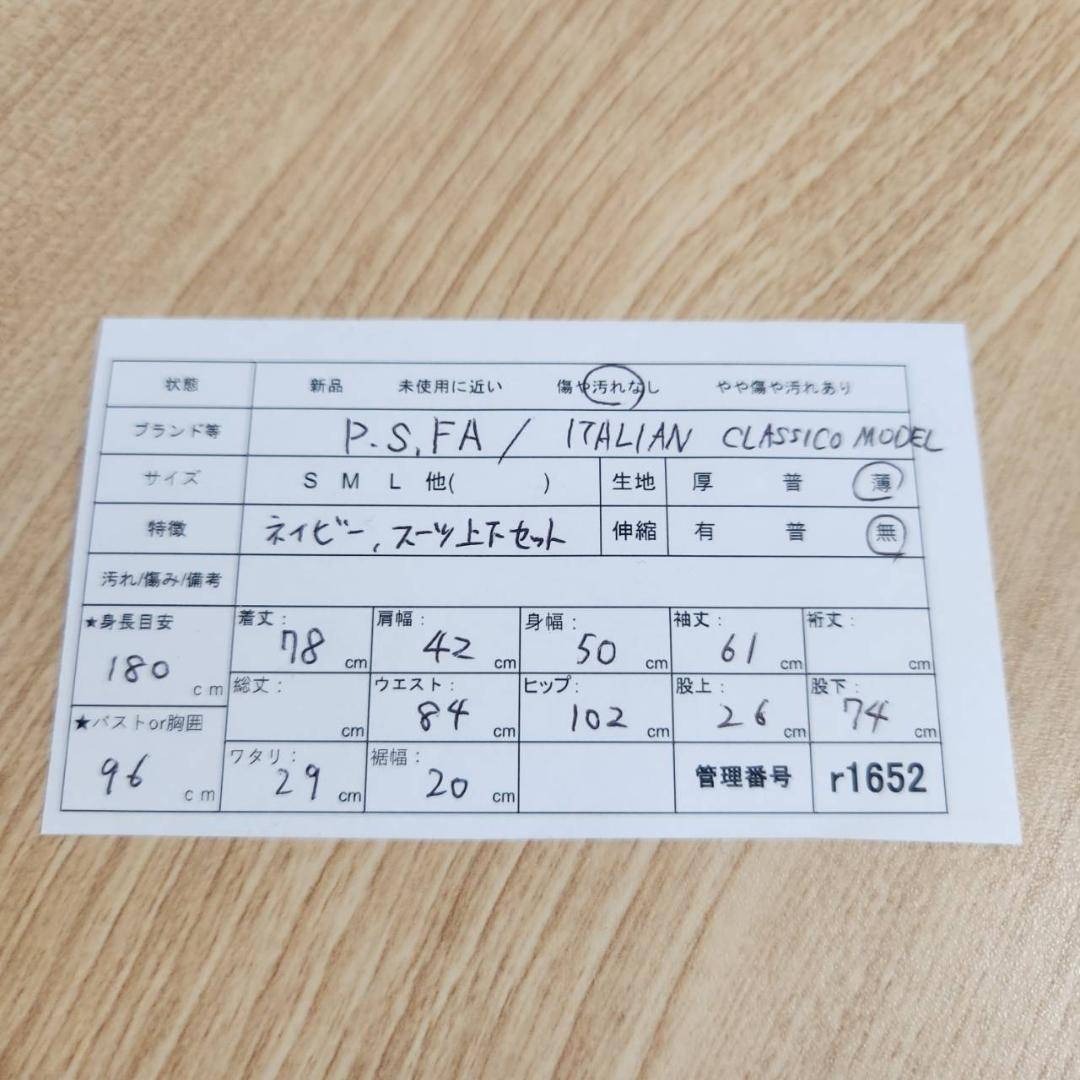 状態 新品 未使用に近い 傷や汚れなし やや傷や汚れあり
ブランド等 P.S,FA / ITALIAN CLASSICO MODEL
サイズ S M L 他( ) 生地 厚 普 薄
特徴 ネイビー, スーツ上下セット 伸縮 有 普 無
汚れ/傷み/備考
★身長目安 180 cm
着丈: 78 cm 肩幅: 42 cm 身幅: 50 cm 袖丈: 61 cm 裄丈: cm
総丈: cm ウエスト: 84 cm ヒップ: 102 cm 股上: 26 cm 股下: 74 cm
★バストor胸囲 96 cm
ワタリ: 29 cm 裾幅: 20 cm 管理番号 r1652